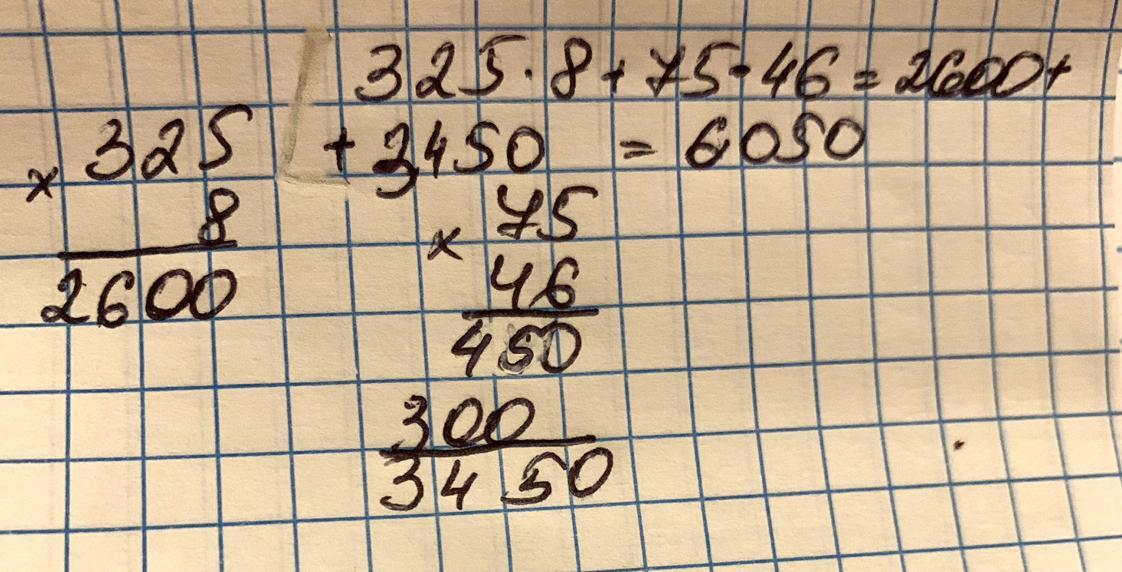 325·8+75·46=2600+
+3450 = 6050
× 325
8
2600
× 75
46
450
300
3450